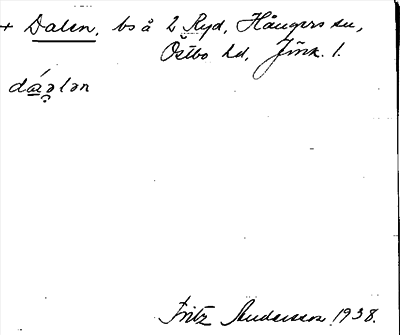 + Dalen, bs å 2 Ryd, Hångers sn,
Östbo hd, Jönk. l.
dáələn
Fritz Andersson 1938.